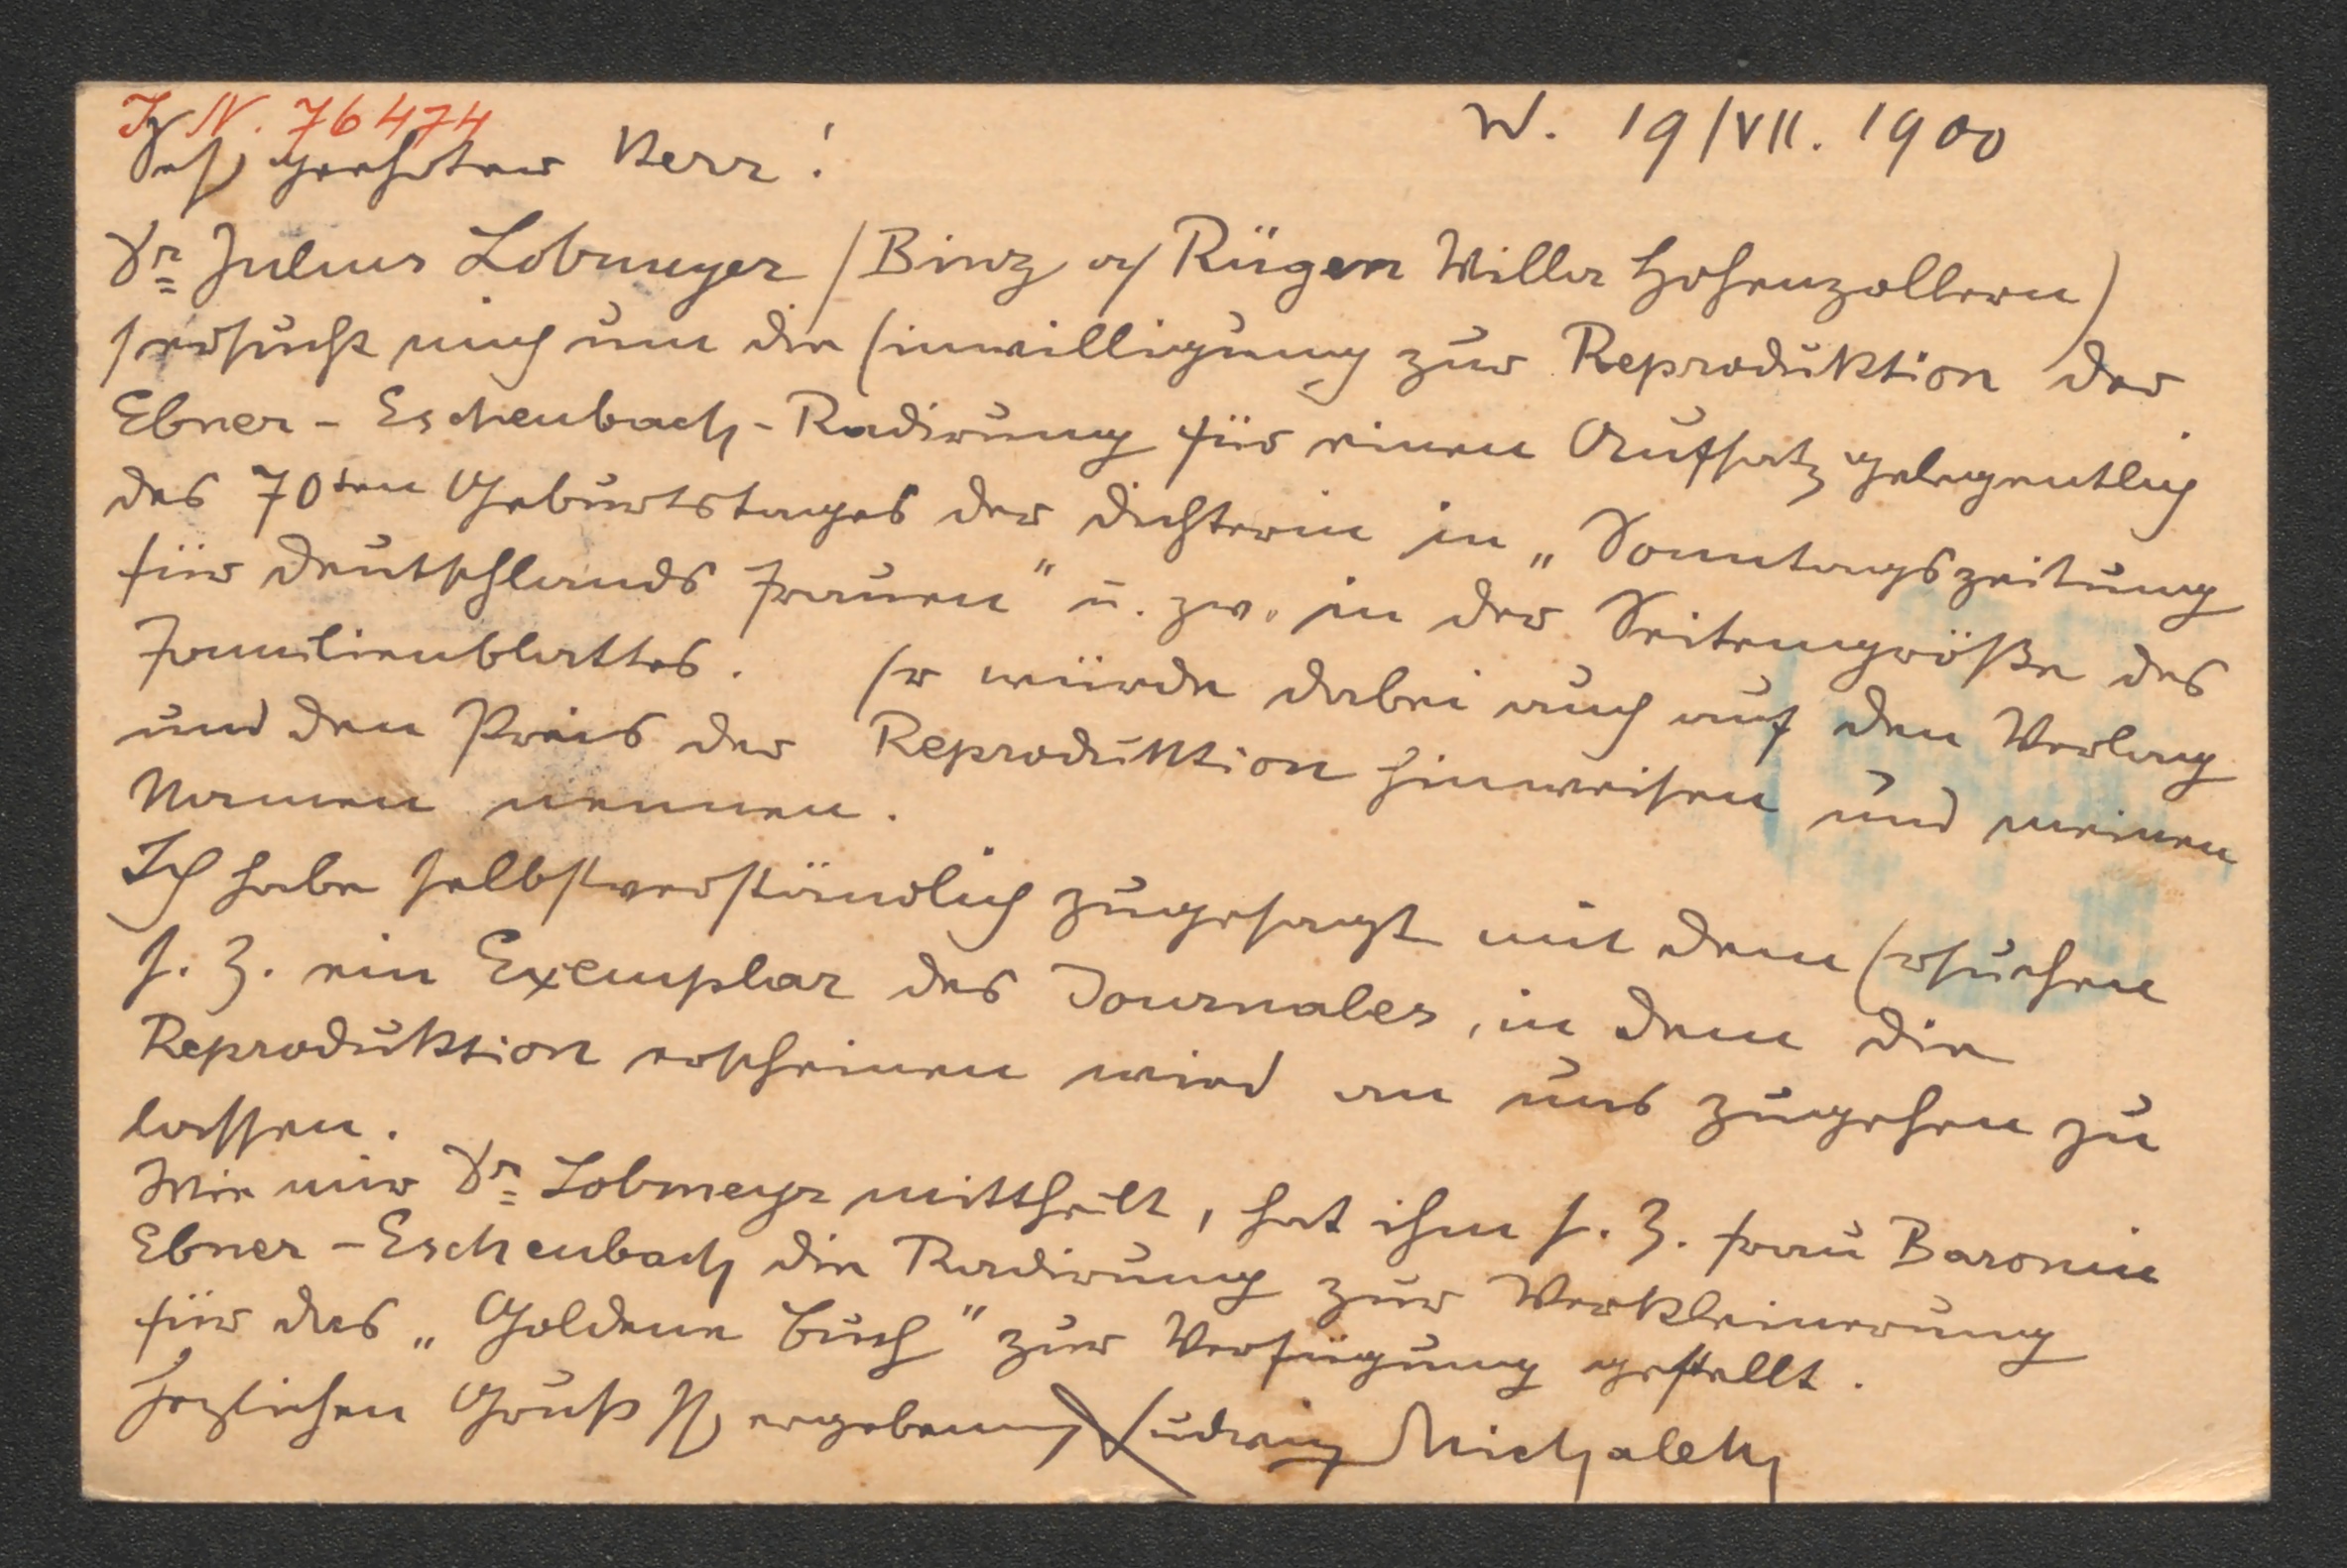 I N. 76474
W. 19/VII. 1900
Sehr geehrter Herr!
Dr Julius Lobmeyer /Binz a/ Rügen Willa Hohenzollern)
ersucht mich um die Einwilligung zur Reproduktion der
Ebner-Eschenbach-Radirung für einen Aufsatz gelegentlich
des 70ten Geburtstages der Dichterin in „Sonntagszeitung
für Deutschlands Frauen" u. zw. in der Seitengröße des
Familienblattes. Er würde dabei auch auf den Verlag
und den Preis der Reproduktion hinweisen und meinen
Namen nennen.
Ich habe selbstverständlich zugesagt mit dem Ersuchen
s. Z. ein Exemplar des Journales, in dem die
Reproduktion erscheinen wird an uns zugehen zu
lassen.
Wie mir Dr Lobmeyr mittheilt, hat ihm s. Z. Frau Baronin
Ebner-Eschenbach die Radirung zur Verkleinerung
für das „Goldene Buch" zur Verfügung gestellt.
Herzlichen Gruß Ihr ergebener Ludwig Michalek